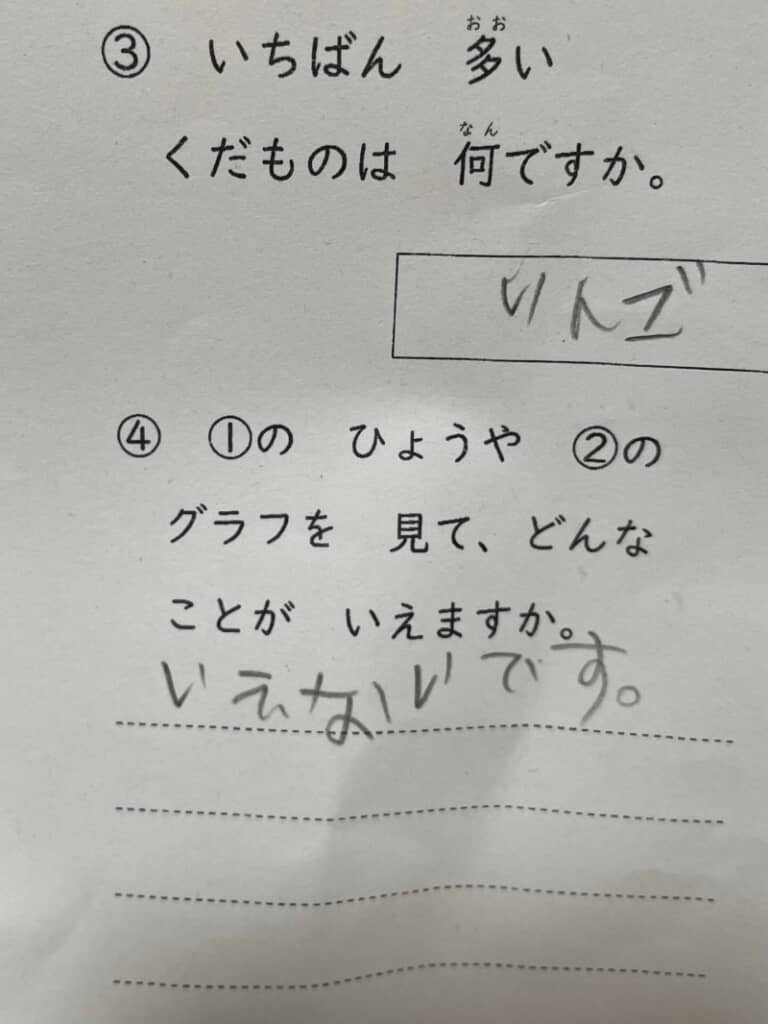 ③ いちばん 多い
くだものは 何ですか。
りんご
④ ①の ひょうや ②の
グラフを 見て、どんな
ことが いえますか。
いえないです。